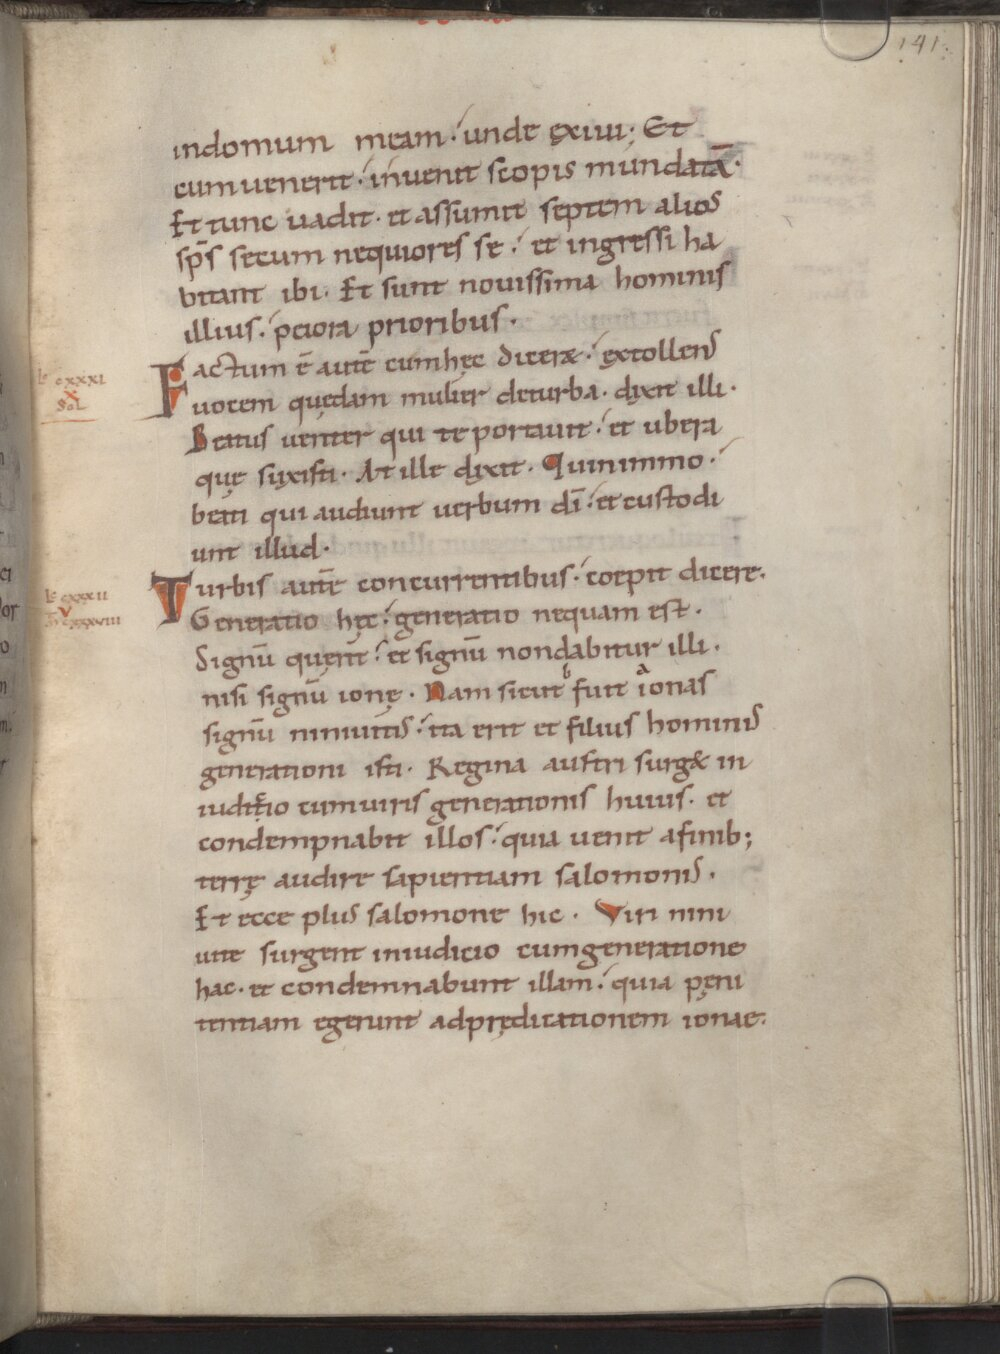 141.
indomum meam. unde exiui; Et
cumuenerit. inuenit scopis mundatā.
Et tunc uadit. et assumit septem alios
sp̄s secum nequiores se. et ingressi ha
bitant ibi. Et sunt nouissima hominis
illius. peiora prioribus.
Factum ē autē cumhęc diceret. extollens
uocem quędam mulier deturba. dixit illi.
Beatus uenter qui te portauit. et ubera
que suxisti. At ille dixit. Quinimmo.
beati qui audiunt uerbum dī. et custodi
unt illud.
Lc cxxxi
X
Sol
Turbis autē concurrentibus. coepit dicere.
Generatio hęc. generatio nequam est.
Signū querit. et signū nondabitur illi.
nisi signū ionę. Nam sicut b fuit a ionas
signū niniuitis. ita erit et filius hominis
generationi isti. Regina austri surget in
iuditio cumuiris generationis huius. et
condempnabit illos. quia uenit afinib;
terrę audire sapientiam salomonis.
Et ecce plus salomone hic. Viri nini
uite surgent iniudicio cumgeneratione
hac. et condemnabunt illam. quia pęni
tentiam egerunt adpredicationem ionae.
Lc cxxxii
V